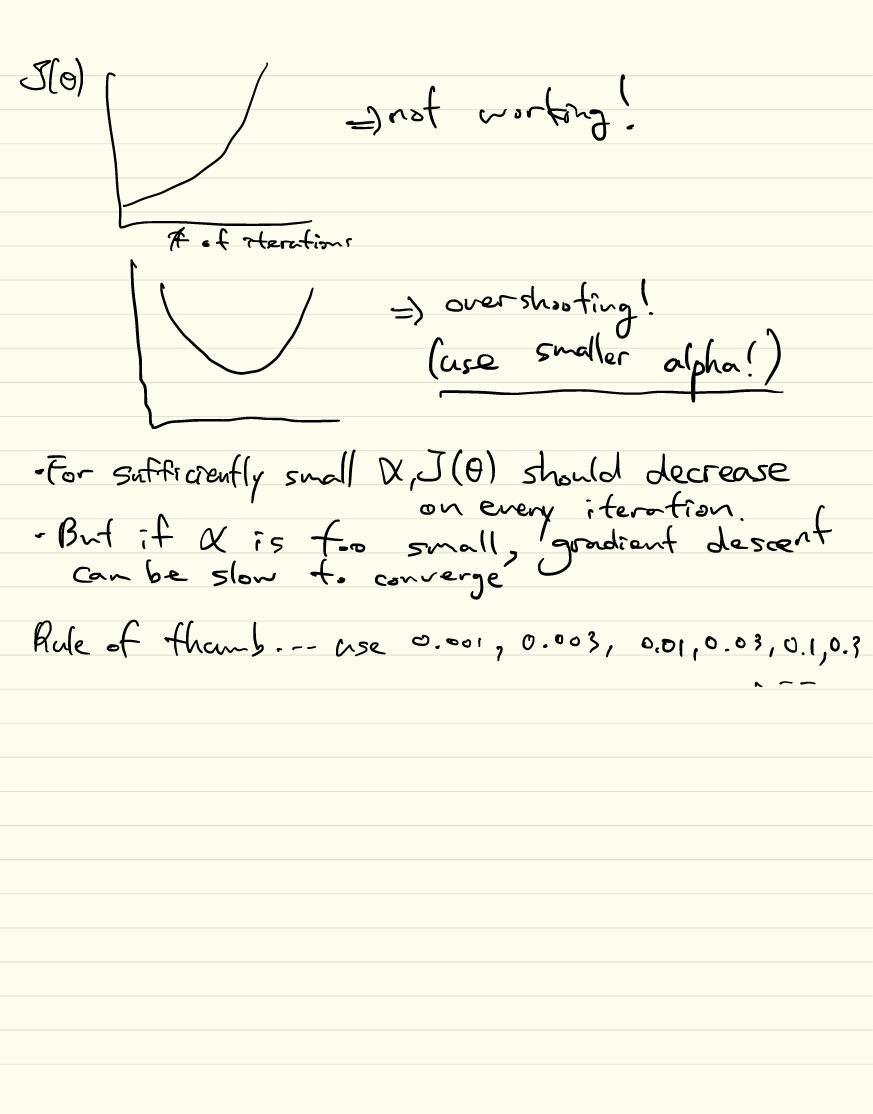 J(θ)
⇒ not working!
# of iterations
⇒ overshooting!
(use smaller alpha!)
·For sufficiently small α, J(θ) should decrease
on every iteration.
· But if α is too small, gradient descent
can be slow to converge
Rule of thumb... use 0.001, 0.003, 0.01, 0.03, 0.1, 0.3
...